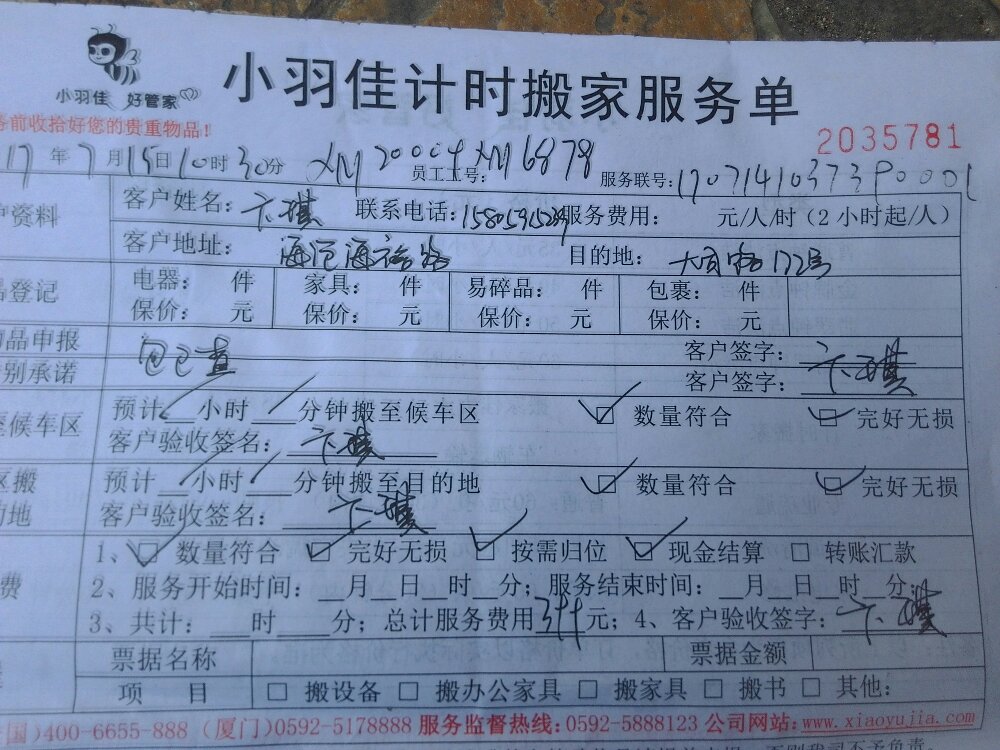 小羽佳计时搬家服务单
小羽佳 好管家
前收拾好您的贵重物品!
2035781
17年7月15日10时30分 XM20004 XM6878
员工工号: 服务联号:
户资料 客户姓名: 卞琪 联系电话: 服务费用: 元/人/时(2小时起/人)
客户地址: 目的地: 172号
品登记 电器: 件 家具: 件 易碎品: 件 包裹: 件
保价: 元 保价: 元 保价: 元 保价: 元
物品申报 客户签字:
别承诺 客户签字: 卞琪
至候车区 预计 小时 分钟搬至候车区 数量符合 完好无损
客户验收签名: 卞琪
区搬 预计 小时 分钟搬至目的地 数量符合 完好无损
的地 客户验收签名: 卞琪
1、 数量符合 完好无损 按需归位 现金结算 转账汇款
费 2、服务开始时间: 月 日 时 分; 服务结束时间: 月 日 时 分;
3、共计: 时 分; 总计服务费用 元; 4、客户验收签字: 卞琪
票据名称 票据金额
项 目 搬设备 搬办公家具 搬家具 搬书 其他:
国)400-6655-888 (厦门)0592-5178888 服务监督热线:0592-5888123 公司网站:www.xiaoyujia.com